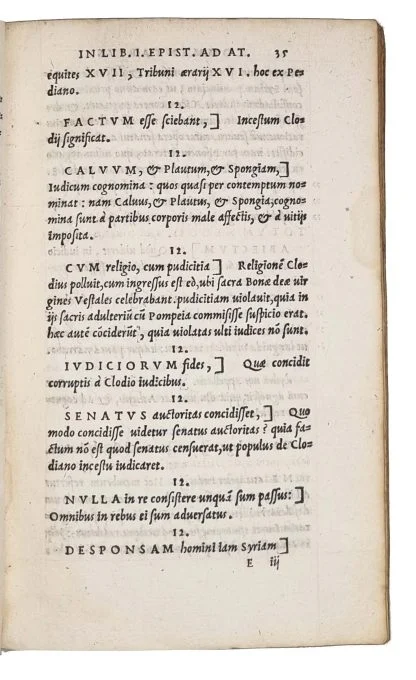 IN LIB. I. EPIST. AD AT. 35
equites XVII, Tribuni ærarij XVI. hoc ex Pe-
diano.
12.
FACTVM esse sciebant,] Incestum Clo-
dij significat.
12.
CALVVM, & Plautum, & Spongiam,]
Iudicum cognomina: quos quasi per contemptum no-
minat: nam Caluus, & Plautus, & Spongia, cogno-
mina sunt à partibus corporis male affectis, & à vitijs
imposita.
12.
CVM religio, cum pudicitia] Religionẽ Clo-
dius polluit, cum ingressus est eò, ubi sacra Bonæ deæ uir
gines Vestales celebrabant. pudicitiam uiolauit, quia in
ijs sacris adulteriũ cũ Pompeia commisisse suspicio erat.
hæc autẽ cõciderũt, quia violatas ulti iudices nõ sunt.
12.
IVDICIORVM fides,] Quæ concidit
corruptis à Clodio iudicibus.
12.
SENATVS auctoritas concidisset,] Quo
modo concidisse uidetur senatus auctoritas? quia fa-
ctum nõ est quod senatus censuerat, ut populus de Clo-
diano incestu iudicaret.
12.
NVLLA in re consistere unquã sum passus:]
Omnibus in rebus ei sum aduersatus.
12.
DESPONSAM homini iam Syriam]
E iij